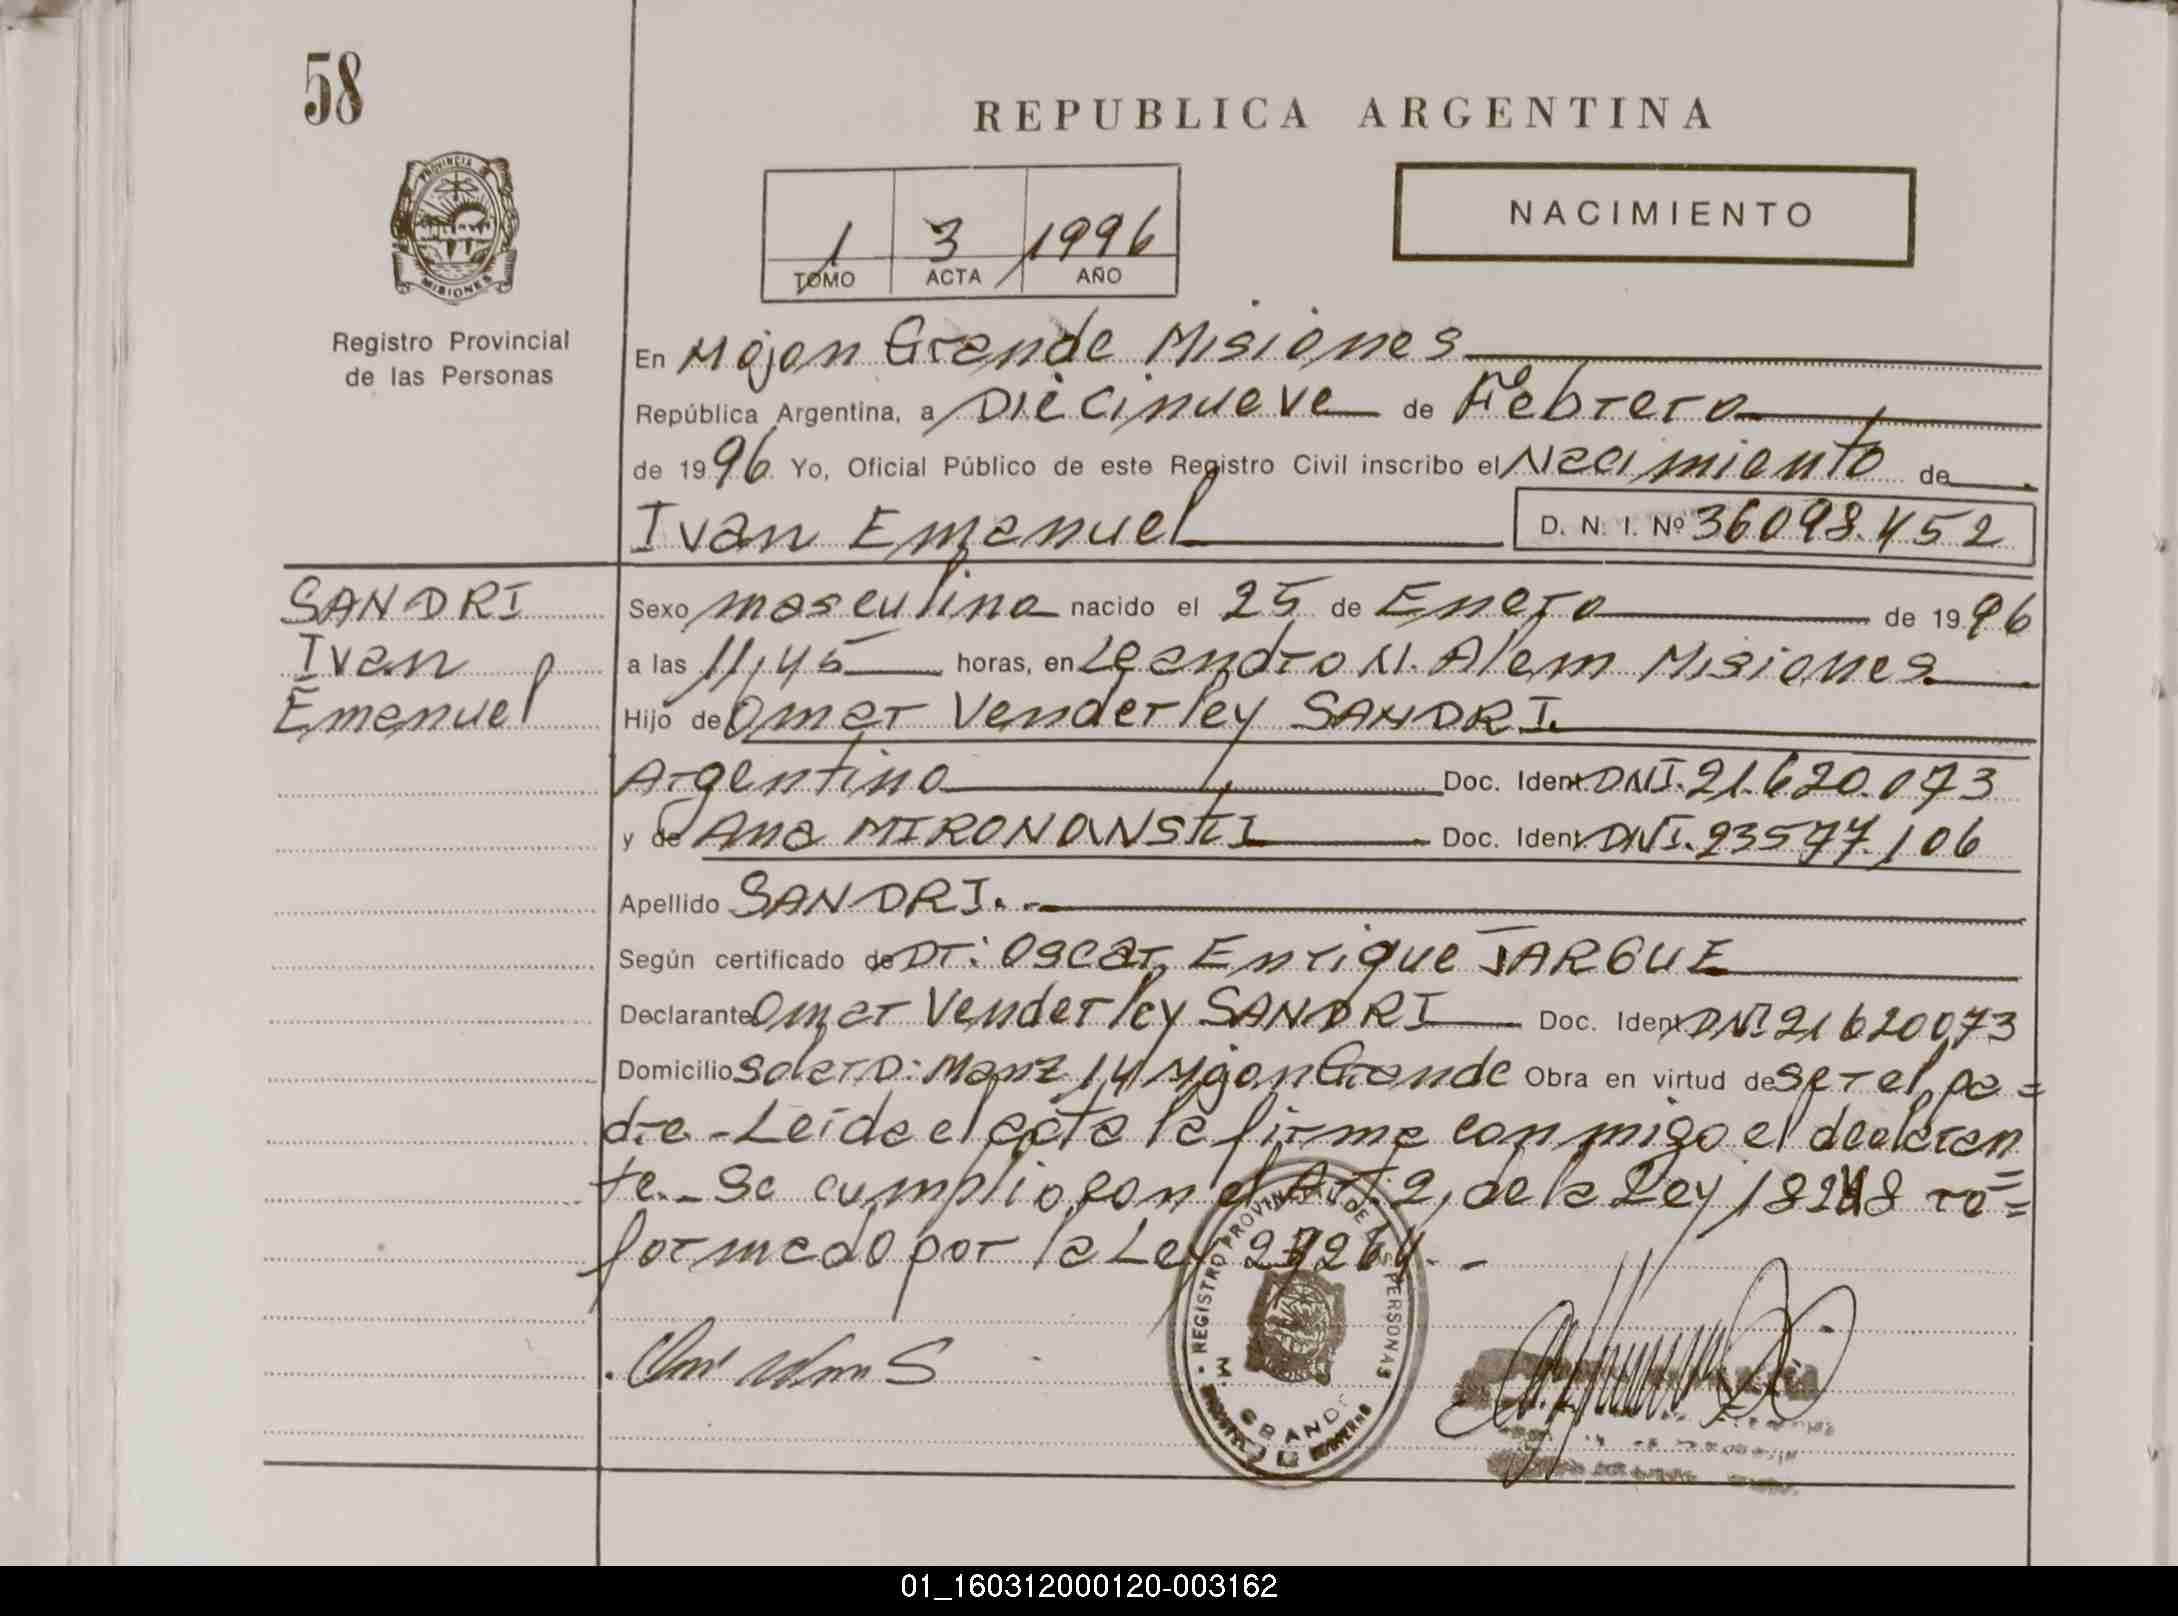 58
REPUBLICA ARGENTINA
PROVINCIA
MISIONES
1 3 1996
TOMO ACTA AÑO
NACIMIENTO
Registro Provincial
de las Personas
En Mojon Grande Misiones
República Argentina, a Diecinueve de Febrero
de 1996 Yo, Oficial Público de este Registro Civil inscribo el Nacimiento de
Ivan Emanuel D. N. I. Nº 36098.452
SANDRI
Ivan
Emanuel
Sexo masculino nacido el 25 de Enero de 1996
a las 11,45 horas, en Leandro N. Alem Misiones
Hijo de Omar Venderley SANDRI
Argentino Doc. Ident DNI. 21.620.073
y de Ana MIRONANSKI Doc. Ident DNI. 23577.106
Apellido SANDRI. -
Según certificado de Dr: Oscar Enrique JARGUE
Declarante Omar Venderley SANDRI Doc. Ident DNI 21620073
Domicilio Solar D: Manz 14 Mojon Grande Obra en virtud de ser el pa=
dre - Leida el acta la firma conmigo el declaran
te. - Se cumplio con el Art. 2, de la Ley 18248 re=
formado por la Ley 23264. -
REGISTRO PROVINCIAL DE LAS PERSONAS
M. GRANDE
01_160312000120-003162